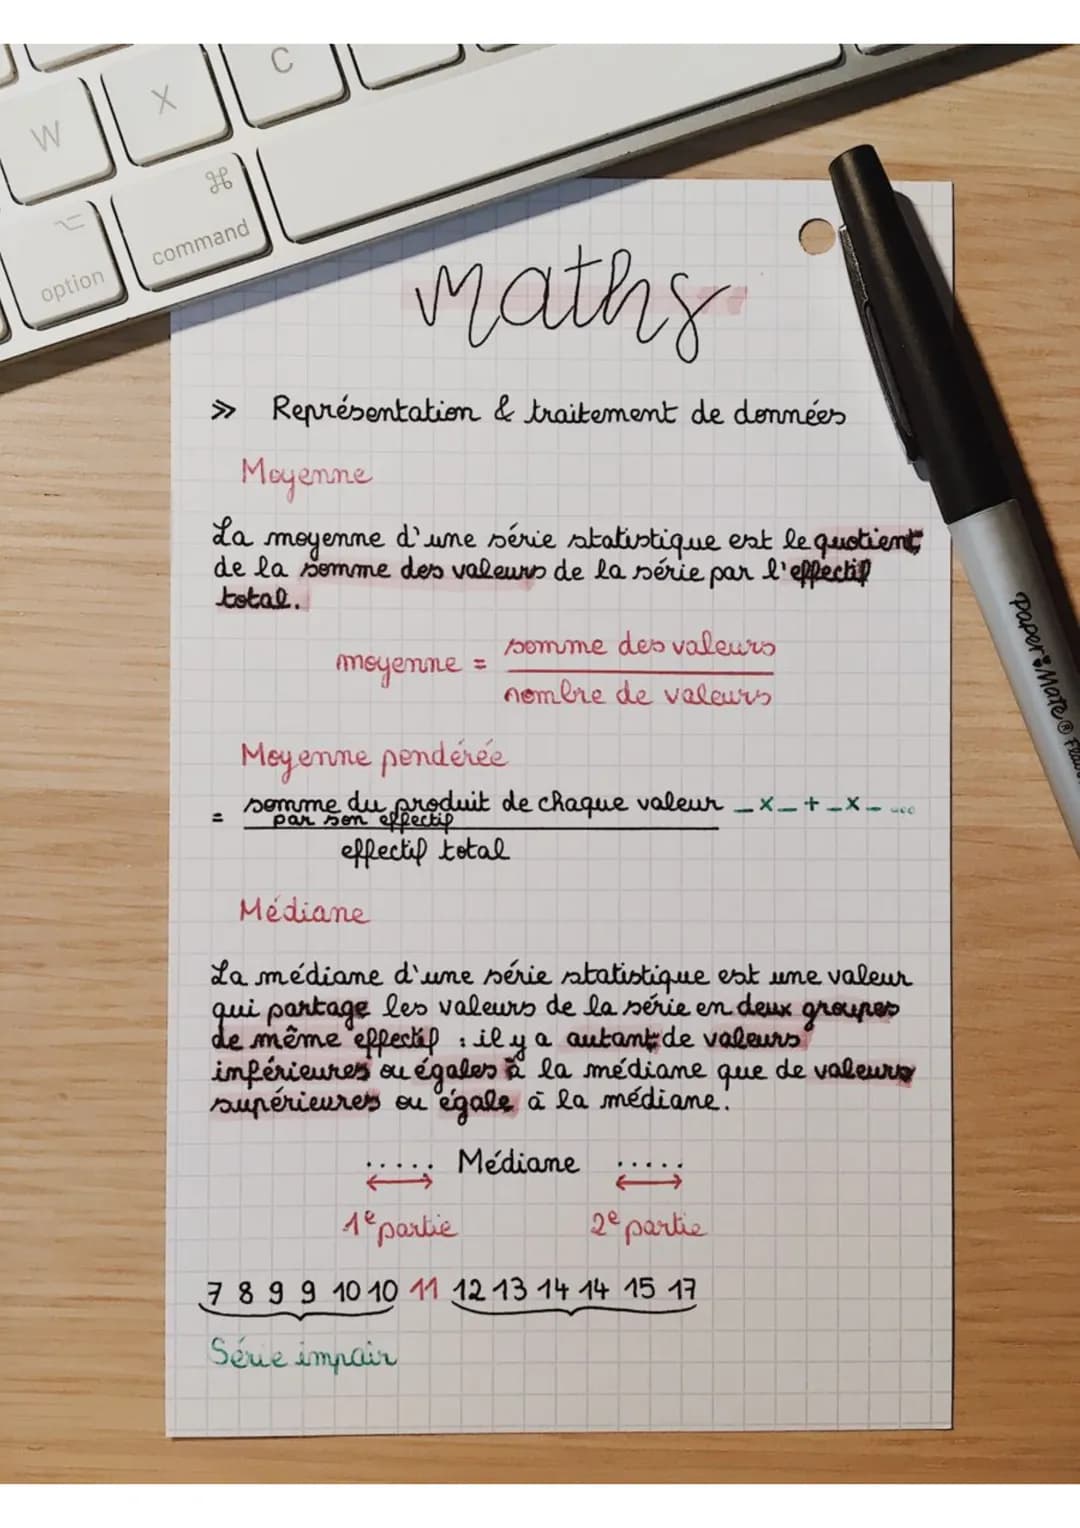 W
X
C
⌘
⌥
option
command
Maths
>> Représentation & traitement de données
Moyenne
La moyenne d'une série statistique est le quotient
de la somme des valeurs de la série par l'effectif
total.
moyenne = somme des valeurs
nombre de valeurs
Moyenne pondérée
= somme du produit de chaque valeur _x_+_x_ ...
par son effectif
effectif total
Médiane
La médiane d'une série statistique est une valeur
qui partage les valeurs de la série en deux groupes
de même effectif : il y a autant de valeurs
inférieures ou égales à la médiane que de valeurs
supérieures ou égale à la médiane.
..... Médiane .....
1e partie 2e partie
7 8 9 9 10 10 11 12 13 14 14 15 17
Série impair
Paper Mate®